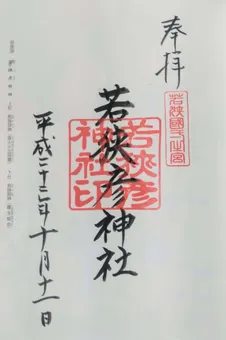 奉拝
若狭國一之宮
若狭彦神社
若狭彦
神社印
平成二十三年十月十一日